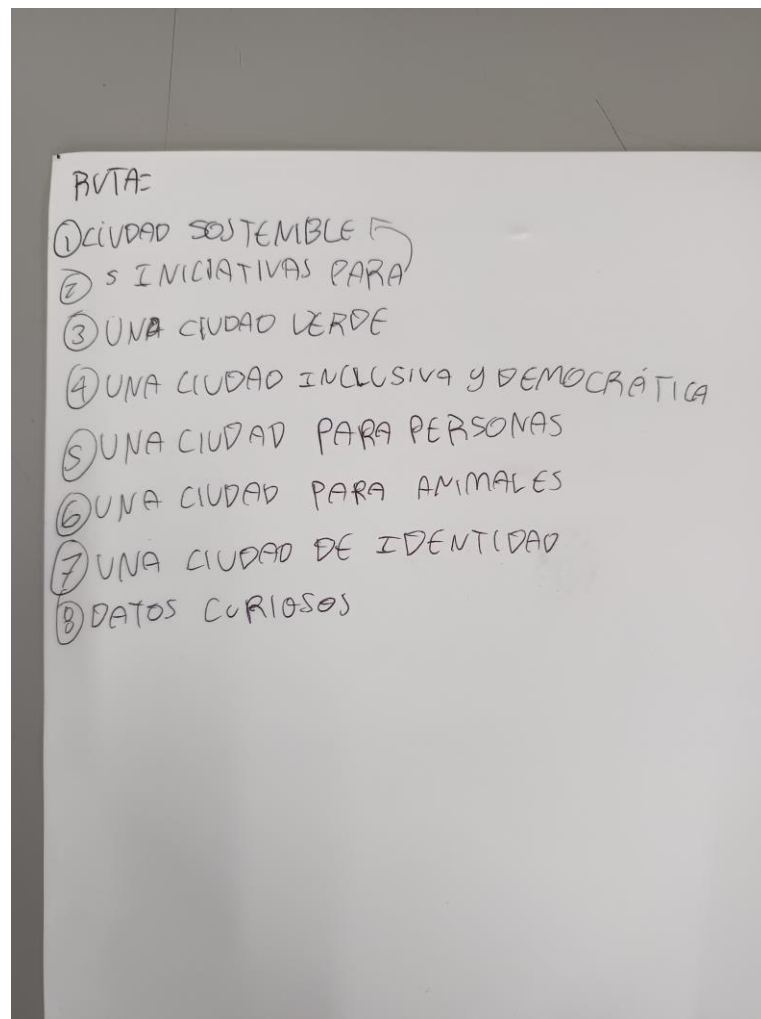 RUTA=
① CIUDAD SOSTEMBLE
② 5 INICIATIVAS PARA
③ UNA CIUDAD VERDE
④ UNA CIUDAD INCLUSIVA Y DEMOCRÁTICA
⑤ UNA CIUDAD PARA PERSONAS
⑥ UNA CIUDAD PARA ANIMALES
⑦ UNA CIUDAD DE IDENTIDAD
⑧ DATOS CURIOSOS